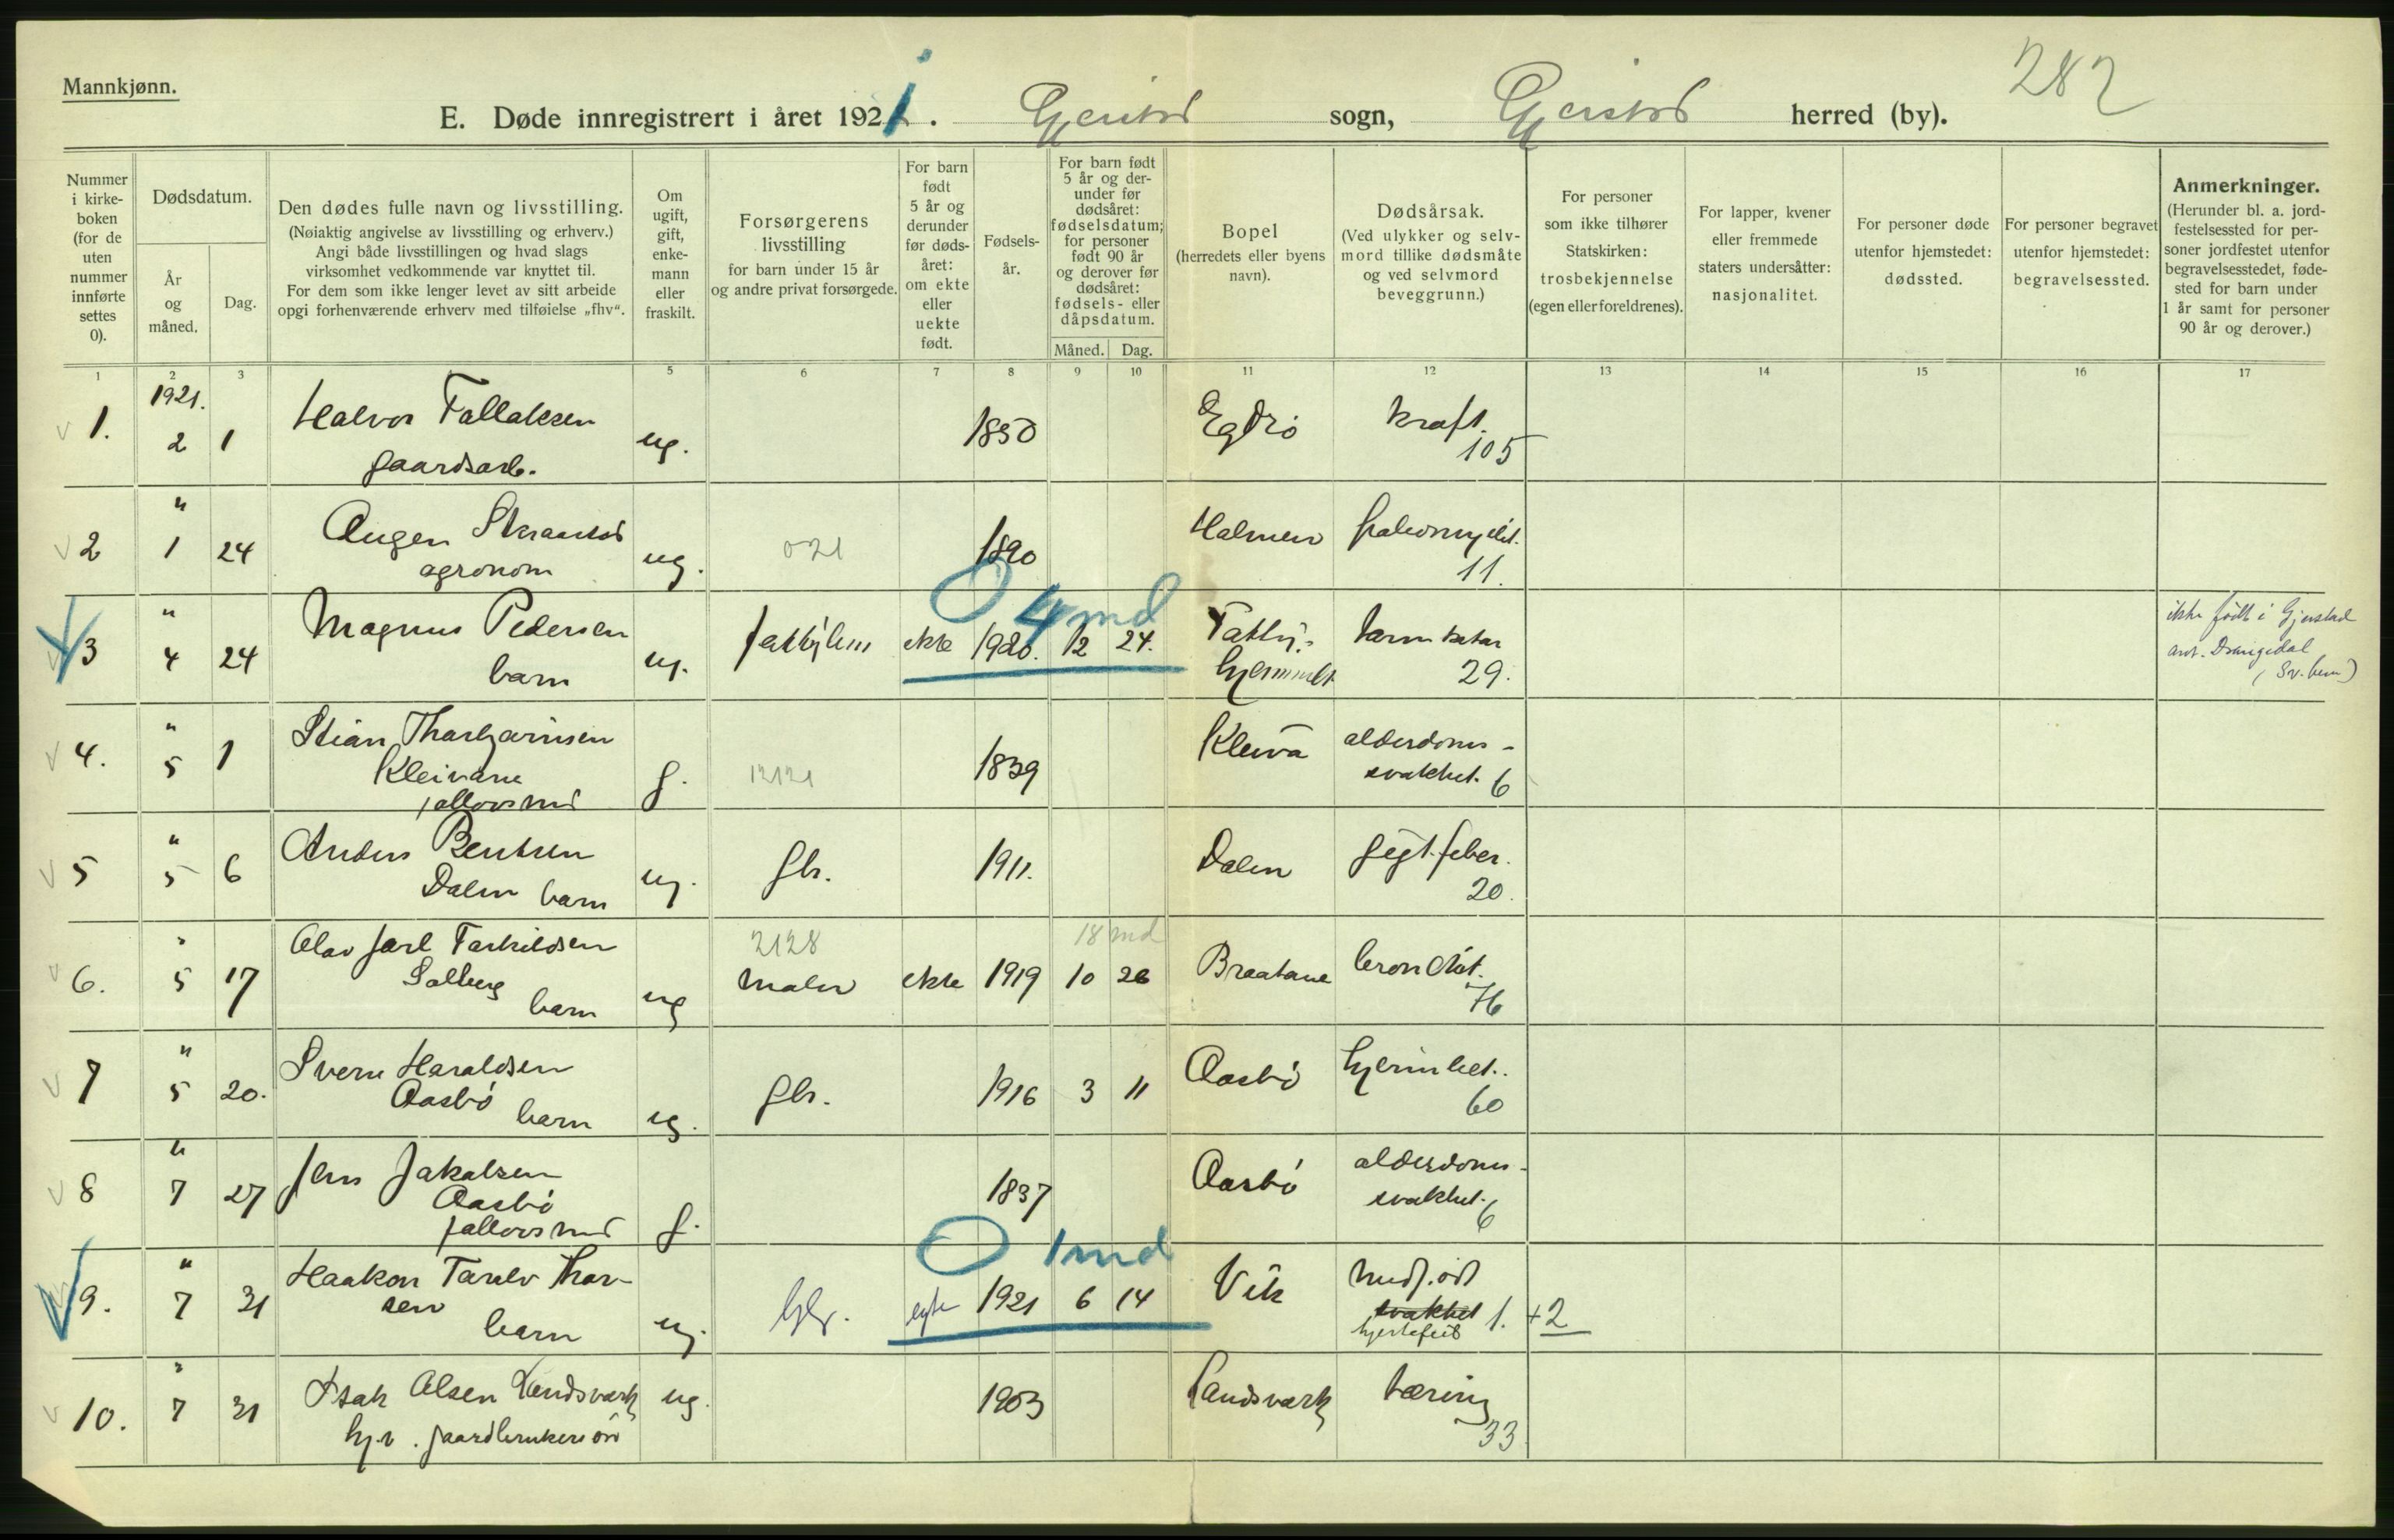 Mannkjønn.
282
E. Døde innregistrert i året 1921. Gjerstad sogn, Gjerstad herred (by).
Nummer i kirke-boken (for de uten nummer innførte settes 0).
Dødsdatum.
År og måned.
Dag.
Den dødes fulle navn og livsstilling.
(Nøiaktig angivelse av livsstilling og erhverv.)
Angi både livsstillingen og hvad slags
virksomhet vedkommende var knyttet til.
For dem som ikke lenger levet av sitt arbeide
opgi forhenværende erhverv med tilføielse „fhv“.
Om ugift, gift, enke-mann eller fraskilt.
Forsørgerens livsstilling
for barn under 15 år
og andre privat forsørgede.
For barn født 5 år og derunder før døds-året: om ekte eller uekte født.
Fødsels-år.
For barn født 5 år og der-under før dødsåret: fødselsdatum; for personer født 90 år og derover før dødsåret: fødsels- eller dåpsdatum.
Måned. Dag.
Bopel
(herredets eller byens navn).
Dødsårsak.
(Ved ulykker og selv-mord tillike dødsmåte og ved selvmord beveggrunn.)
For personer som ikke tilhører Statskirken: trosbekjennelse (egen eller foreldrenes).
For lapper, kvener eller fremmede staters undersåtter: nasjonalitet.
For personer døde utenfor hjemstedet: dødssted.
For personer begravet utenfor hjemstedet: begravelsessted.
Anmerkninger.
(Herunder bl. a. jord-festelsessted for per-soner jordfestet utenfor begravelsesstedet, føde-sted for barn under 1 år samt for personer 90 år og derover.)
1 2 3 5 6 7 8 9 10 11 12 13 14 15 16 17
1921.
1. 2 1 Halvor Tallaksen ug. 1850 Egdø kraft.
gaardsarb. 105
"
2 1 24 Augen ug. 021 1890 Halmen
agronom 11.
0 4 md
"
3 4 24 Magnus Pedersen barn ug. ekte 1920. 12 24. tarmkatar
29.
ikke født i Gjerstad
ant. Drangedal
"
4. 5 1 Stian g. 12121 1839 Kleiva alderdoms-
Kleivane svakhet. 6
"
5 5 6 Anders Bentsen ug. gbr. 1911. Dalen gigtfeber.
Dalen barn 20.
"
2128 18 md
6. 5 17 Olav Jarl Tarkildsen ug maler ekte 1919 10 26 Braatane bronchit.
Solberg barn 76
"
7 5 20. Sverre Haraldsen ug. gbr. 1916 3 11 Aasbø
Aasbø barn 60
"
8 7 27 Jens Jakobsen g. 1837 Aasbø alderdoms-
Aasbø svakhet. 6
0 1 md
"
9. 7 31 Haakon Taralv Thor-
sen barn ug. gbr. egte 1921 6 14 Vik medfødt
svakhet 1. +2
hjertefeil
"
10. 7 31 Isak Olsen Landsværk ug. 1903 Landsværk tæring
33